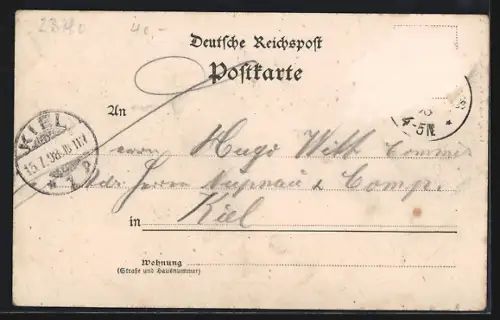 2340 40
Deutsche Reichspost
Postkarte
KIEL
15.7.98. III 11V
* 1 *
4-5N *
An
Hugo Witt
Herrn & Comp.
in Kiel
Wohnung
(Straße und Hausnummer)